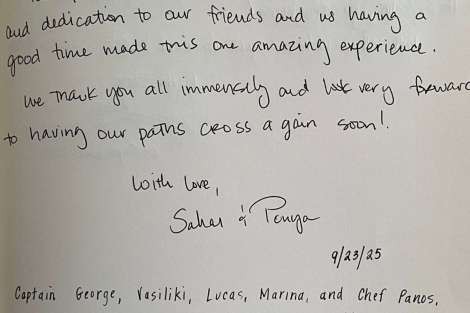 and dedication to our friends and us having a
good time made this one amazing experience.
We thank you all immensely and look very forward
to having our paths cross a gain soon!.
With love,
Sahar &
9/23/25
Captain George, Vasiliki, Lucas, Marina, and Chef Panos,